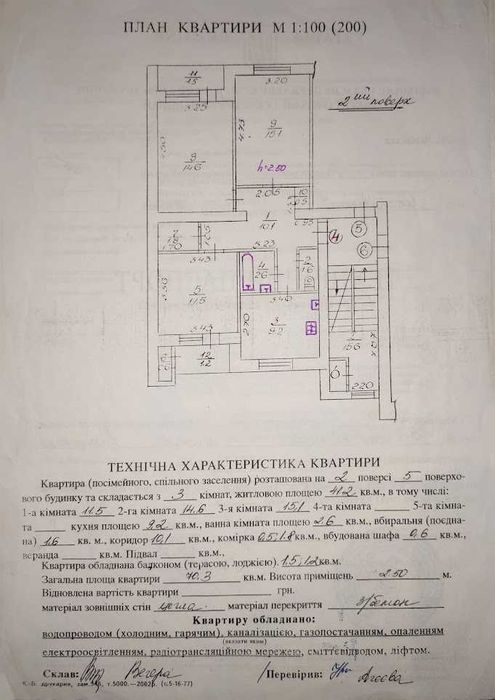 ПЛАН КВАРТИРИ М 1:100 (200)
2ий поверх
11
1.5
3.20
3.25
9
15.1
h=2.50
9
14.6
2.05
10
1
10.1
7
1.8
1.70
5.23
3.43
4
2.6
5
11.5
3.40
3
9.2
3.43
12
1.2
15.6
2.20
4
5
6
ТЕХНІЧНА ХАРАКТЕРИСТИКА КВАРТИРИ
Квартира (посімейного, спільного заселення) розташована на 2 поверсі 5 поверхо-
вого будинку та складається з 3 кімнат, житловою площею 41.2 кв.м., в тому числі:
1-а кімната 11.5 2-га кімната 14.6 3-я кімната 15.1 4-та кімната 5-та кімна-
та кухня площею 9.2 кв.м., ванна кімната площею 2.6 кв.м., вбиральня (поєдна-
на) 1.6 кв. м., коридор 10.1 кв.м., комірка 0.5;1.8 кв.м., вбудована шафа 0.6 кв.м.,
веранда кв.м. Підвал кв.м.,
Квартира обладвана балконом (терасою, лоджією) 1.5;1.2 кв.м.
Загальна площа квартири 70.3 кв.м. Висота приміщень 2.50 м.
Відновлена вартість квартири грн.
матеріал зовнішніх стін цегла матеріал перекриття з/бетон
Квартиру обладнано:
водопроводом (холодним, гарячим), каналізацією, газопостачанням, опаленням
(вказати яким)
електроосвітленням, радіотрансляційною мережею, сміттєвідводом, ліфтом.
Склав: Вегера Перевірив: Агеєва
К.-Б. друкарня, зам. т.5000.—2002р. (с.5-16-77)